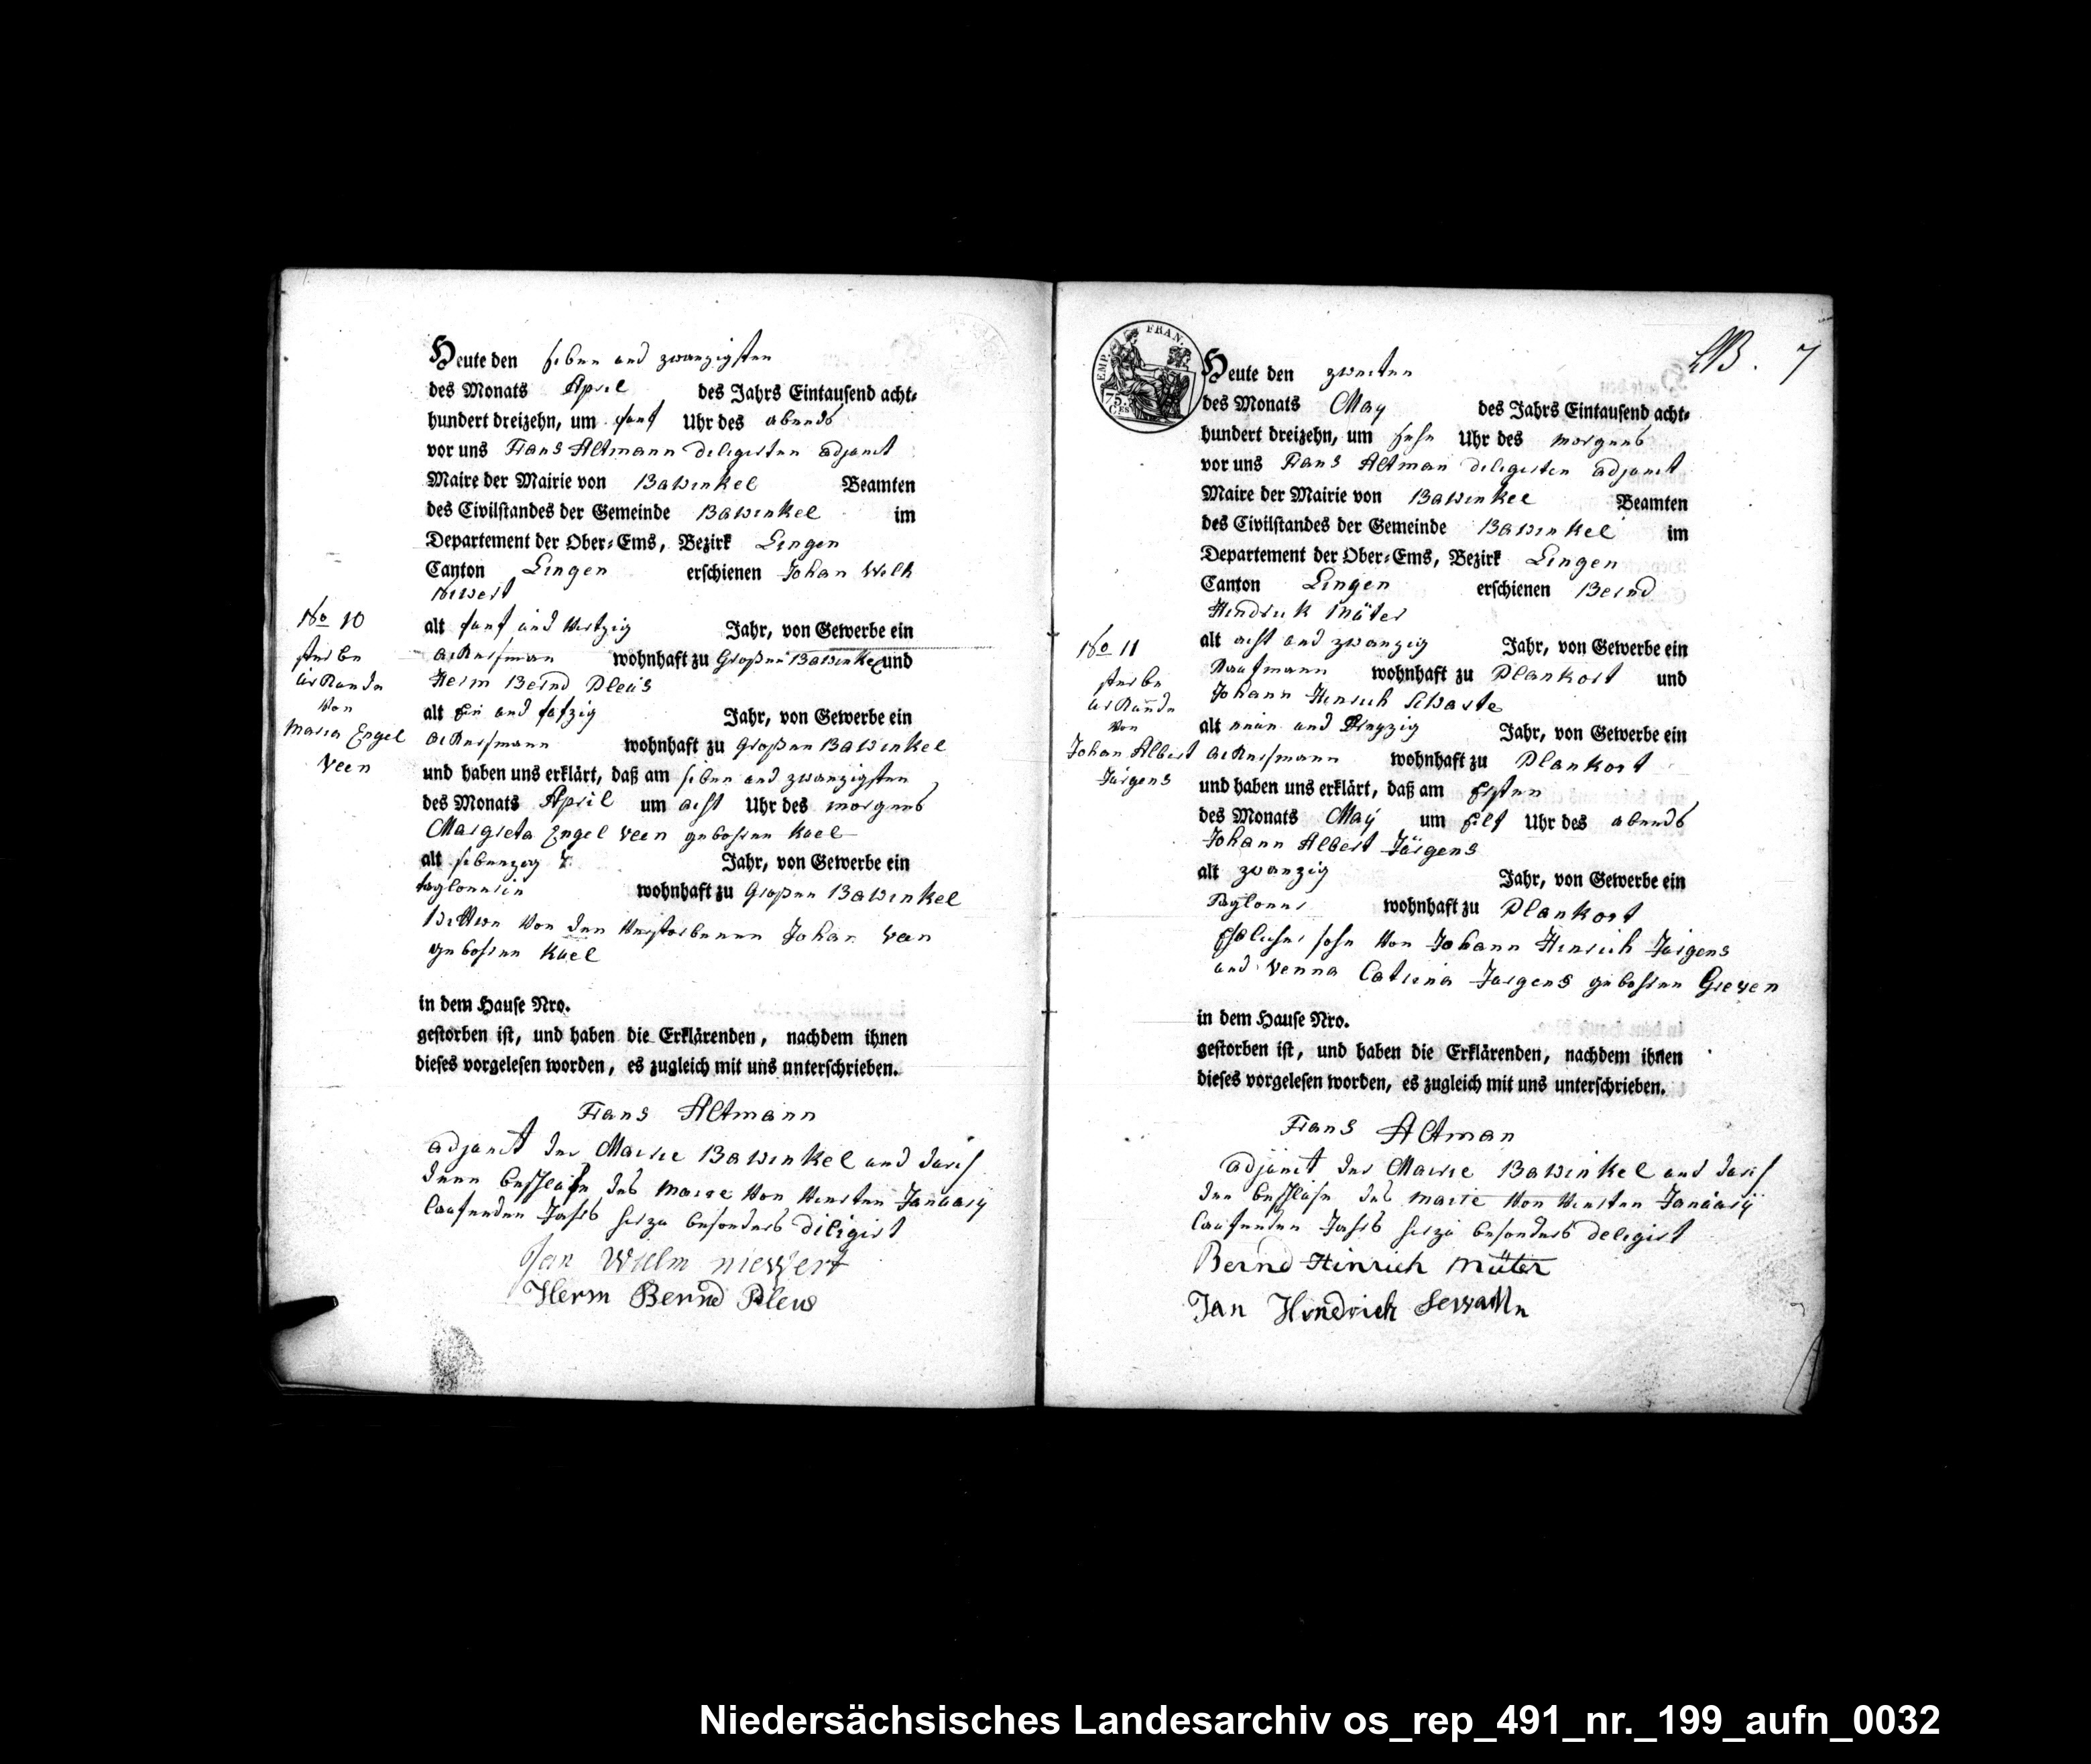 Heute den sieben und zwanzigsten
des Monats April des Jahrs Eintausend acht-
hundert dreizehn, um fünf Uhr des abends
vor uns Frans Altmann delegirten adjunct
Maire der Mairie von Bawinkel Beamten
des Civilstandes der Gemeinde Bawinkel im
Departement der Ober-Ems, Bezirk Lingen
Canton Lingen erschienen Johan Wilh
Niwert
No 10
sterbe
urkunde
von
Maria Engel
Veen
alt fünf und virtzig Jahr, von Gewerbe ein
ackersman wohnhaft zu Großen Bawinkel und
Herm Bernd Pleus
alt Ein und fufzig Jahr, von Gewerbe ein
ackersmann wohnhaft zu Großen Bawinkel
und haben uns erklärt, daß am sieben und zwanzigsten
des Monats April um acht Uhr des morgens
Margreta Engel Veen gebohren Kuel
alt siebenzig Jahr, von Gewerbe ein
taglonnrin wohnhaft zu Großen Bawinkel
Wittwe von den verstorbenen Johan Veen
gebohren Kuel
in dem Hause Nro.
gestorben ist, und haben die Erklärenden, nachdem ihnen
dieses vorgelesen worden, es zugleich mit uns unterschrieben.
Frans Altmann
adjunct der Mairie Bawinkel und durch
denn beschluß des Maire von virten January
laufenden Jahrs hirzu besonders diligirt
Jan Willm niewert
Herm Bernd Pleus
EMP. FRAN.
75.
CES
7
Heute den zweiten
des Monats May des Jahrs Eintausend acht-
hundert dreizehn, um sehn Uhr des morgens
vor uns Frans Altman delegirten adjunct
Maire der Mairie von Bawinkel Beamten
des Civilstandes der Gemeinde Bawinkel im
Departement der Ober-Ems, Bezirk Lingen
Canton Lingen erschienen Bernd
Hindrick Müter
No 11
sterbe
urkunde
von
Johan Albert
Jürgens
alt acht und zwanzig Jahr, von Gewerbe ein
Kaufmann wohnhaft zu Plankort und
Johann Hinrich
alt neun und Jahr, von Gewerbe ein
ackersmann wohnhaft zu Plankort
und haben uns erklärt, daß am Ersten
des Monats May um Eilf Uhr des abends
Johann Albert Jürgens
alt zwanzig Jahr, von Gewerbe ein
Taglonner wohnhaft zu Plankort
Ehelicher sohn von Johann Hinrich Jürgens
und Venna Catrina Jurgens gebohren Greven
in dem Hause Nro.
gestorben ist, und haben die Erklärenden, nachdem ihnen
dieses vorgelesen worden, es zugleich mit uns unterschrieben.
Frans Altman
adjunct der Mairie Bawinkel und durch
den beschluß des Marie von virten January
laufenden Jahrs hirzu besonders delegirt
Bernd Hinrich Müter
Jan Hendrich
Niedersächsisches Landesarchiv os_rep_491_nr._199_aufn_0032